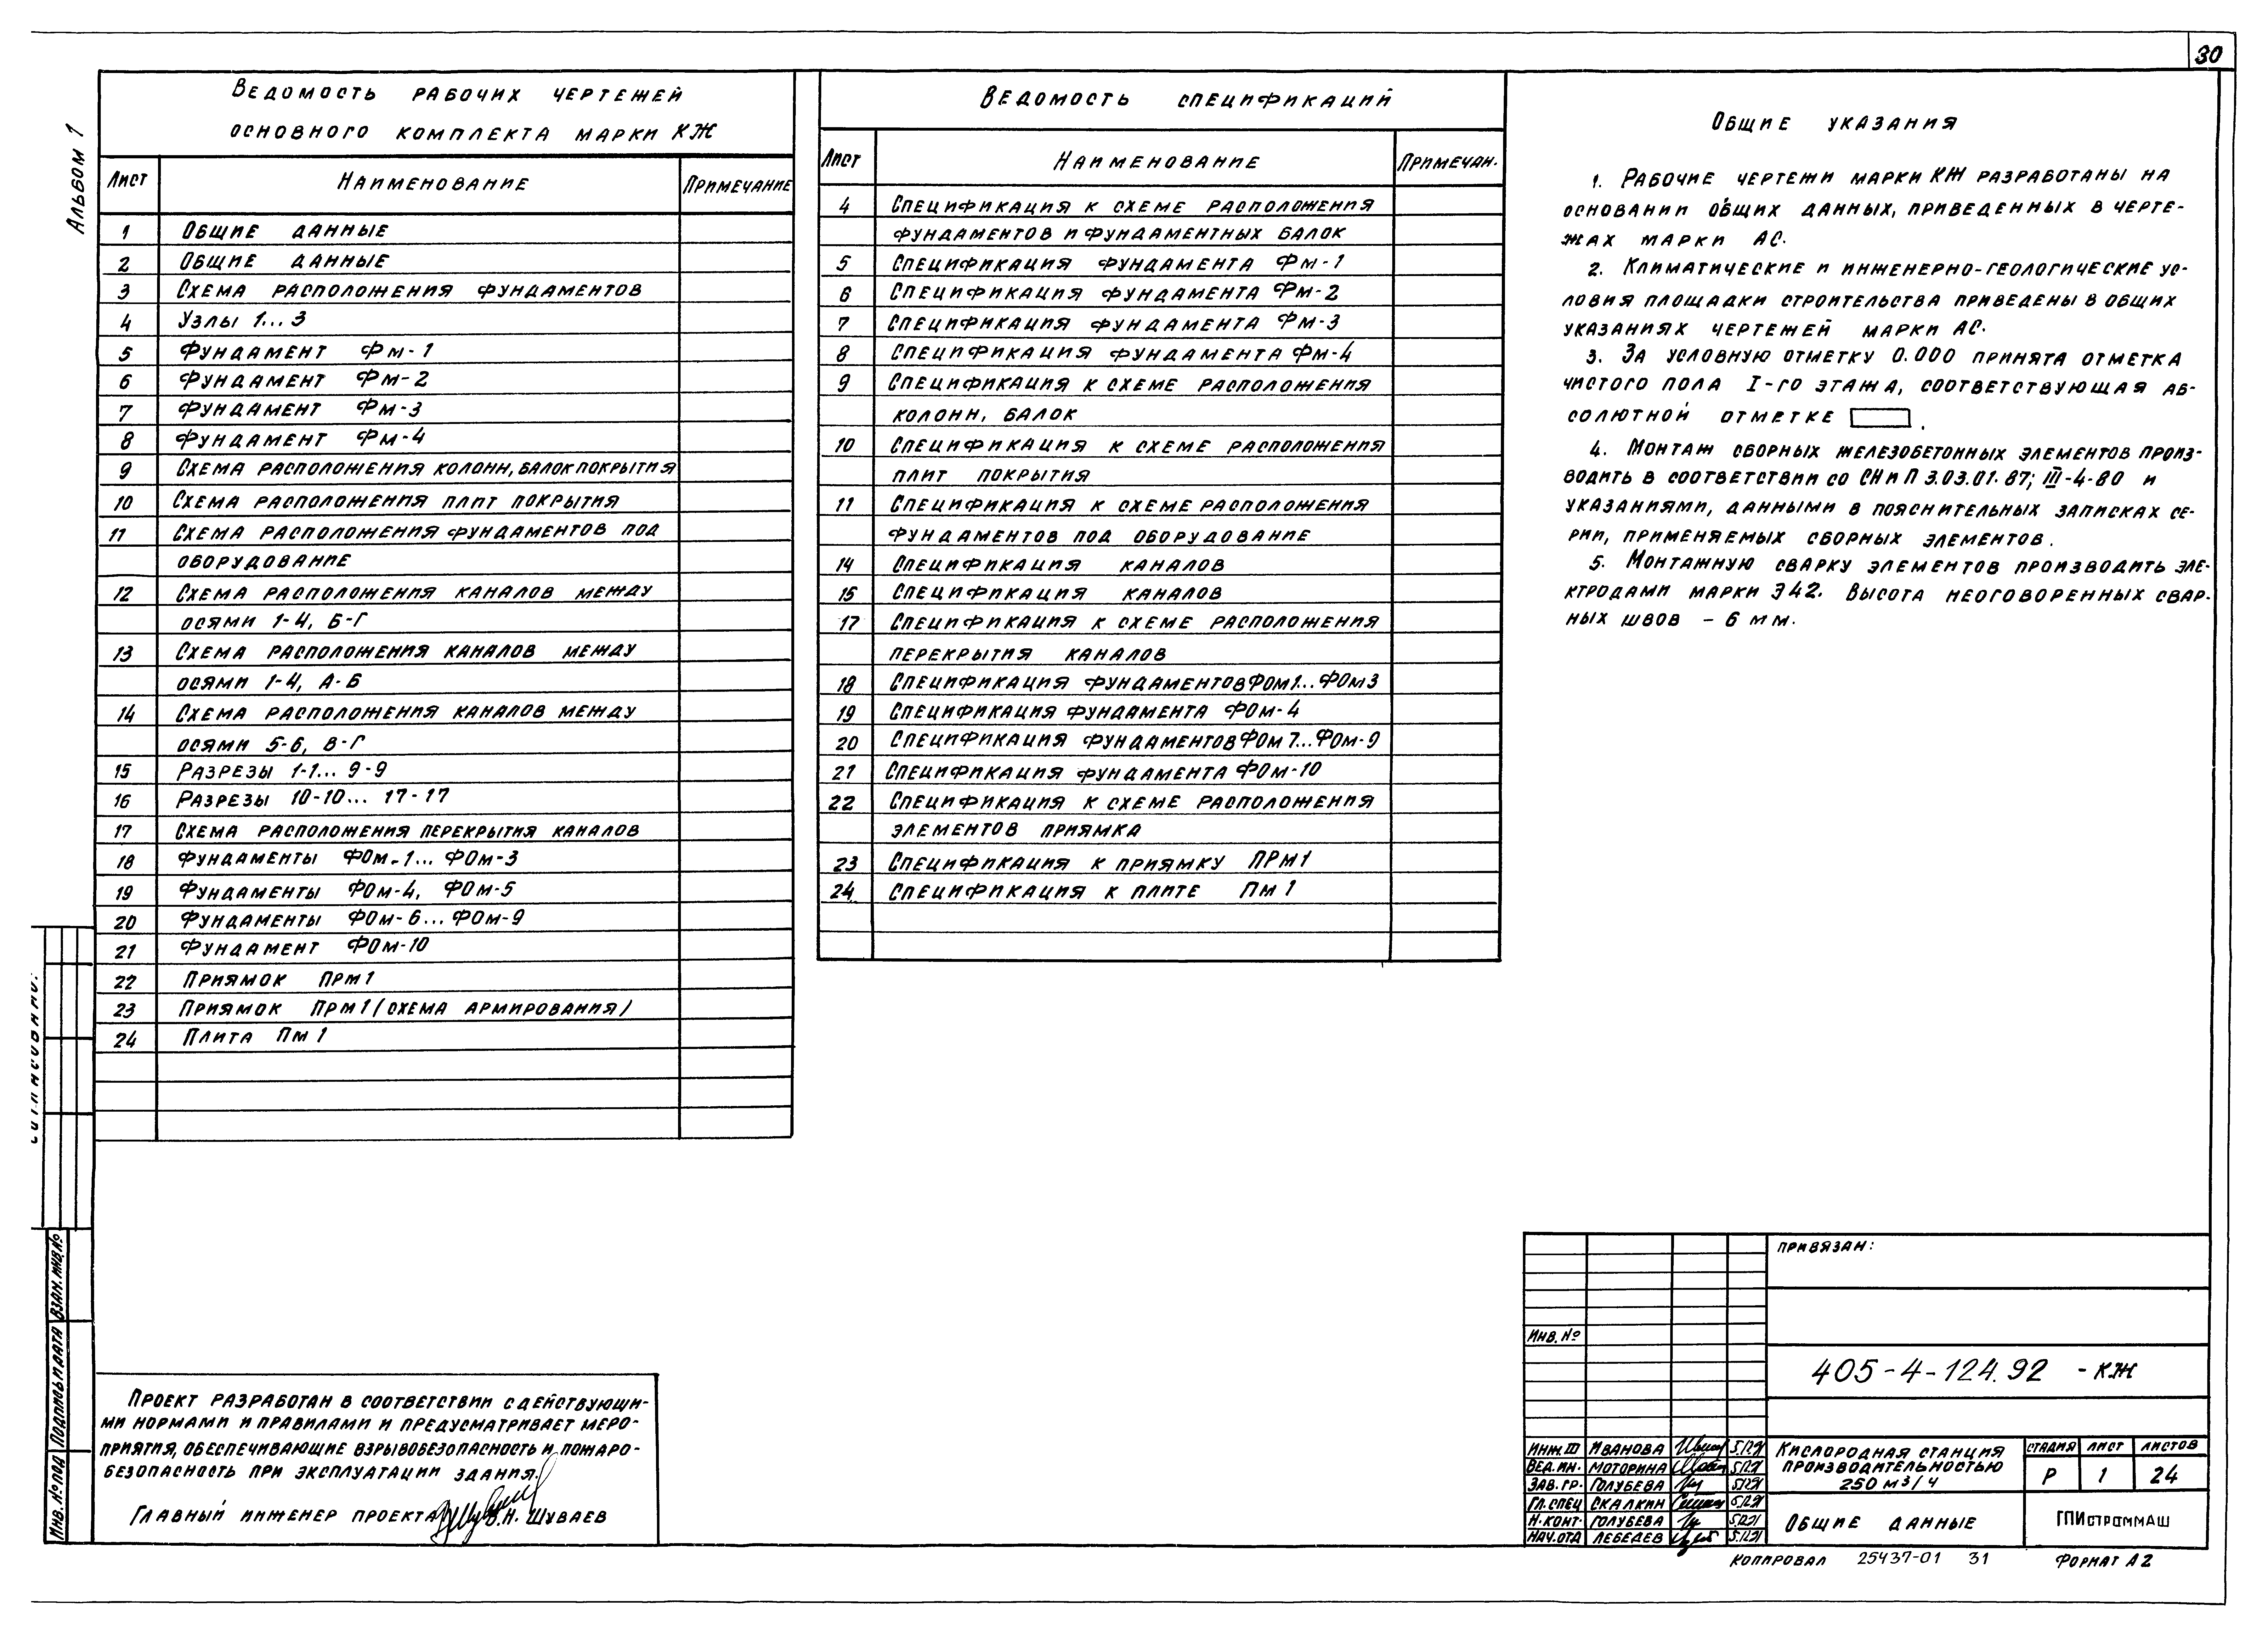 30
Альбом 1
Ведомость рабочих чертежей
основного комплекта марки КЖ
Лист Наименование Примечание
1 Общие данные
2 Общие данные
3 Схема расположения фундаментов
4 Узлы 1...3
5 Фундамент Фм-1
6 Фундамент Фм-2
7 Фундамент Фм-3
8 Фундамент Фм-4
9 Схема расположения колонн, балок покрытия
10 Схема расположения плит покрытия
11 Схема расположения фундаментов под
оборудование
12 Схема расположения каналов между
осями 1-4, Б-Г
13 Схема расположения каналов между
осями 1-4, А-Б
14 Схема расположения каналов между
осями 5-6, В-Г
15 Разрезы 1-1... 9-9
16 Разрезы 10-10... 17-17
17 Схема расположения перекрытия каналов
18 Фундаменты ФОм-1... ФОм-3
19 Фундаменты ФОм-4, ФОм-5
20 Фундаменты ФОм-6... ФОм-9
21 Фундамент ФОм-10
22 Приямок Прм1
23 Приямок Прм1 (схема армирования)
24 Плита Пм1
Ведомость спецификаций
Лист Наименование Примечан.
4 Спецификация к схеме расположения
фундаментов и фундаментных балок
5 Спецификация фундамента Фм-1
6 Спецификация фундамента Фм-2
7 Спецификация фундамента Фм-3
8 Спецификация фундамента Фм-4
9 Спецификация к схеме расположения
колонн, балок
10 Спецификация к схеме расположения
плит покрытия
11 Спецификация к схеме расположения
фундаментов под оборудование
14 Спецификация каналов
15 Спецификация каналов
17 Спецификация к схеме расположения
перекрытия каналов
18 Спецификация фундаментов ФОм1... ФОм3
19 Спецификация фундамента ФОм-4
20 Спецификация фундаментов ФОм7... ФОм-9
21 Спецификация фундамента ФОм-10
22 Спецификация к схеме расположения
элементов приямка
23 Спецификация к приямку ПРм1
24 Спецификация к плите Пм1
Общие указания
1. Рабочие чертежи марки КЖ разработаны на
основании общих данных, приведенных в черте-
жах марки АС.
2. Климатические и инженерно-геологические ус-
ловия площадки строительства приведены в общих
указаниях чертежей марки АС.
3. За условную отметку 0.000 принята отметка
чистого пола I-го этажа, соответствующая аб-
солютной отметке .
4. Монтаж сборных железобетонных элементов произ-
водить в соответствии со СНиП 3.03.01.87; III-4-80 и
указаниями, данными в пояснительных записках се-
рии, применяемых сборных элементов.
5. Монтажную сварку элементов производить эле-
ктродами марки Э42. Высота неоговоренных свар-
ных швов - 6 мм.
Проект разработан в соответствии с действующи-
ми нормами и правилами и предусматривает меро-
приятия, обеспечивающие взрывобезопасность и пожаро-
безопасность при эксплуатации здания.
Главный инженер проекта В.Н. Шуваев
Инв. № под Подпись и дата Взам. инв. №
привязан:
Инв. №
405-4-124.92 - КЖ
Инж. III Иванова 5.12.91
Вед. ин. Моторина 5.12.91
Зав. гр. Голубева 5.12.91
Гл. спец Скалкин 5.12.91
Н. конт. Голубева 5.12.91
Нач. отд Лебедев 5.12.91
Кислородная станция
производительностью
250 м3/ч
стадия лист листов
Р 1 24
Общие данные
ГПИстроммаш
Копировал 25437-01 31 Формат А2